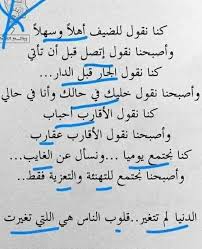 كنا نقول للضيف أهلاً وسهلاً
وأصبحنا نقول إتصل قبل أن تأتي
كنا نقول الجار قبل الدار...
وأصبحنا نقول خليك في حالك وأنا في حالي
كنا نقول الأقارب أحباب
وأصبحنا نقول الأقارب عقارب
كنا نجتمع يوميا ...ونسأل عن الغايب...
وأصبحنا نجتمع للتهنئة والتعزية فقط...
الدنيا لم تتغير..قلوب الناس هي اللتي تغيرت